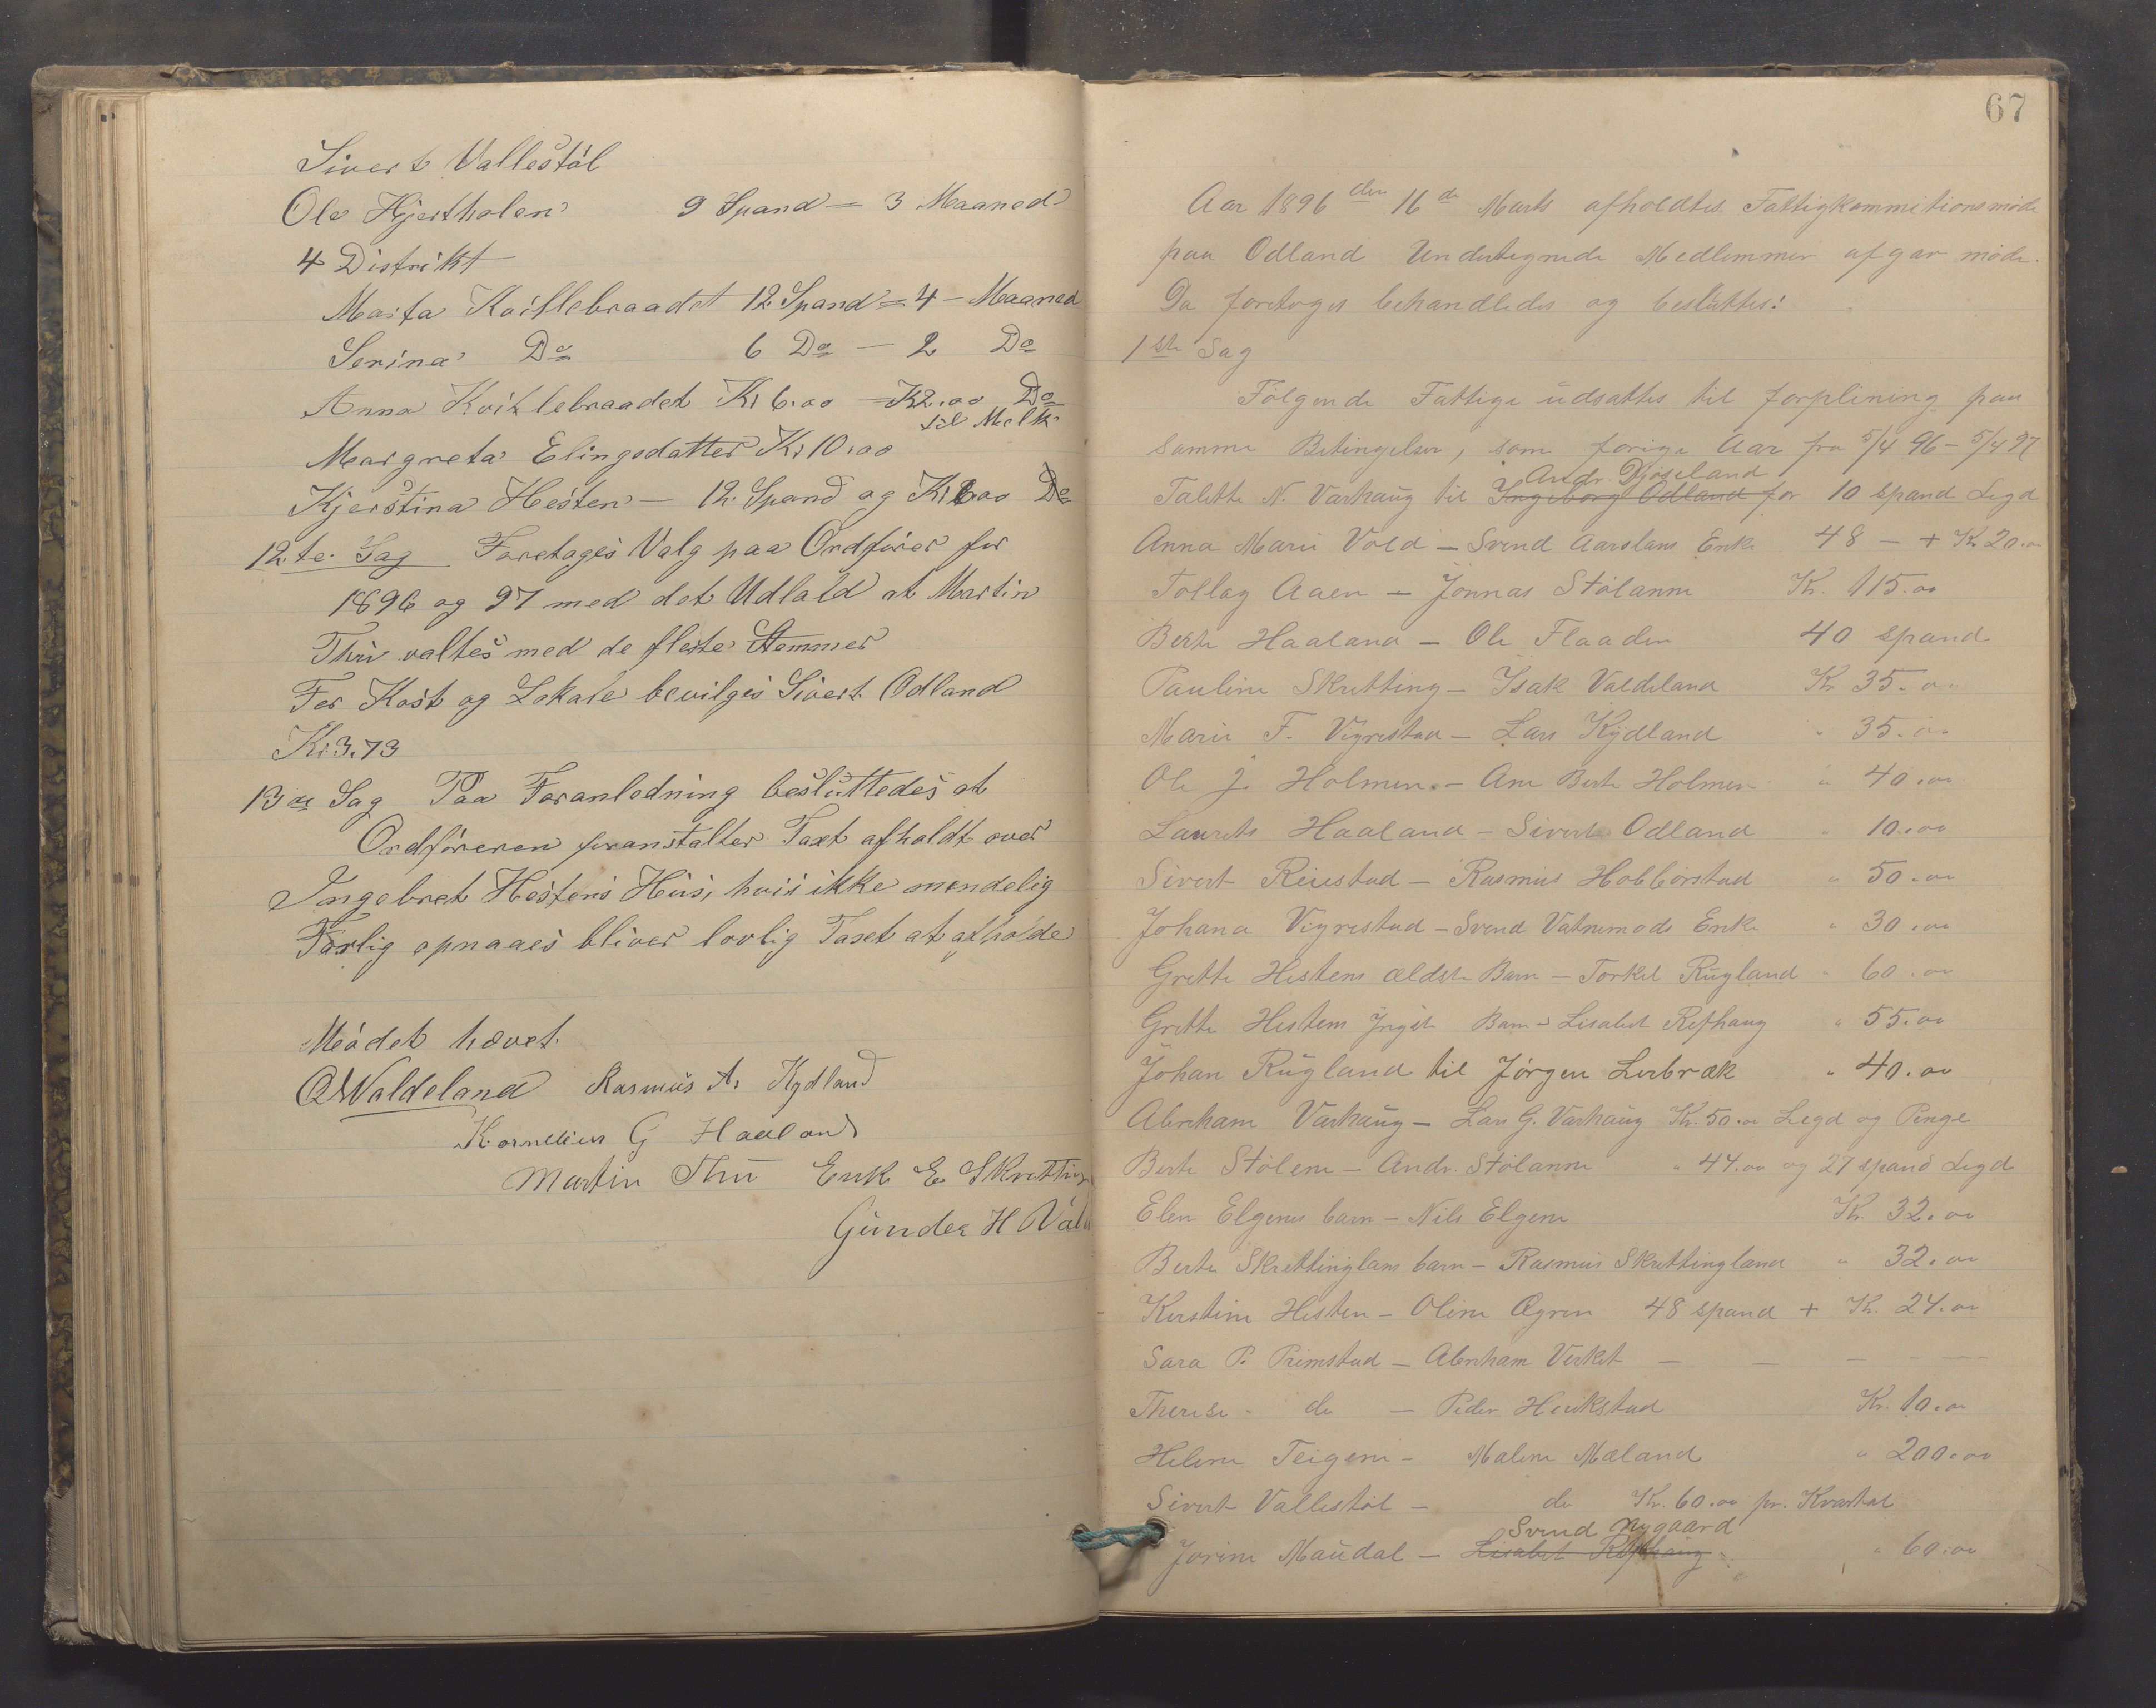 Sivert Vallestöl
Ole Hjertholen 9 Spand = 3 Maaned
4 Distrikt
Marta Kvitlebraadet 12 Spand = 4 - Maaned
Serina Do 6 Do - 2 Do
Anna Kvitlebraadet Kr 6.00 = K2.00 Do
til Melk
Margreta Elingsdatter Kr 10.00
Kjerstina Hesten - 12 Spand og Kr 6.00 Do
12.te Sag Foretoges Valg paa Ordförer for
1896 og 97 med det Udfald at Martin
Thu valtes med de fleste Stemmer
For Kost og Lokale bevilges Sivert Odland
Kr 3.73
13de Sag Paa Foranledning besluttedes at
Ordföreren foranstalter Taxt afholdt over
Ingebret Hestens Hus, hvis ikke mendelig
Forlig opnaaes bliver lovlig Taxt at afholde
Mödet hævet.
O Waldeland Rasmus A. Kydland
Kornelius G Haaland
Martin Thu Erik E Skretting
Gunder H Val
67
Aar 1896 den 16de Marts afholdtes Fattigkommitionsmöde
paa Odland Undertegnede Medlemmer afgav möde.
Da foretoges behandledes og besluttes:
1ste Sag
Fölgende Fattige udsattes til forplining paa
samme Betingelser, som forige Aar fra 5/4 96 - 5/4 97
Andr. Djöseland
Talette N. Varhaug til Ingeborg Odland for 10 spand Legd
Anna Marie Vold - Svend Aarslans Enke 48 - + Kr 20.00
Tollag Aaen - Jonnas Stölanne Kr. 115.00
Berte Haaland - Ole Flaaden 40 spand
Pauline Skretting - Isak Valdeland Kr 35.00
Marie F. Vigrestad - Lars Kydland " 35.00
Ole J. Holmen - Ane Berte Holmen " 40.00
Laurets Haaland - Sivert Odland " 10.00
Sivert Reiestad - Rasmus Hobberstad " 50.00
Johana Vigrestad - Svend Vatnemods Enke " 30.00
Grette Hestens ældste Barn - Torkel Rugland " 60.00
Grette Hestens Yngste Barn - Lisabet Refhaug " 55.00
Johan Rugland til Jörgen Lerbræk " 40.00
Abraham Varhaug - Lars G. Varhaug Kr. 50.00 Legd og Penge
Berte Stölene - Andr. Stölanne " 44.00 og 27 spand Legd
Elen Elgenes barn - Nils Elgene Kr. 32.00
Berte Skrettinglans barn - Rasmus Skrettingland " 32.00
Kirstine Hesten - Oline Ogren 48 spand + Kr. 24.00
Sara P. Primstad - Abraham Verket - - - -
Therese - do - Peder Herikstad Kr. 10.00
Helene Teigene - Malene Mæland " 200.00
Sivert Vallestöl - do Kr. 60.00 pr. Kvartal
Svend Nygaard
Jorine Maudal - Lisabet Refhaug " 60.00